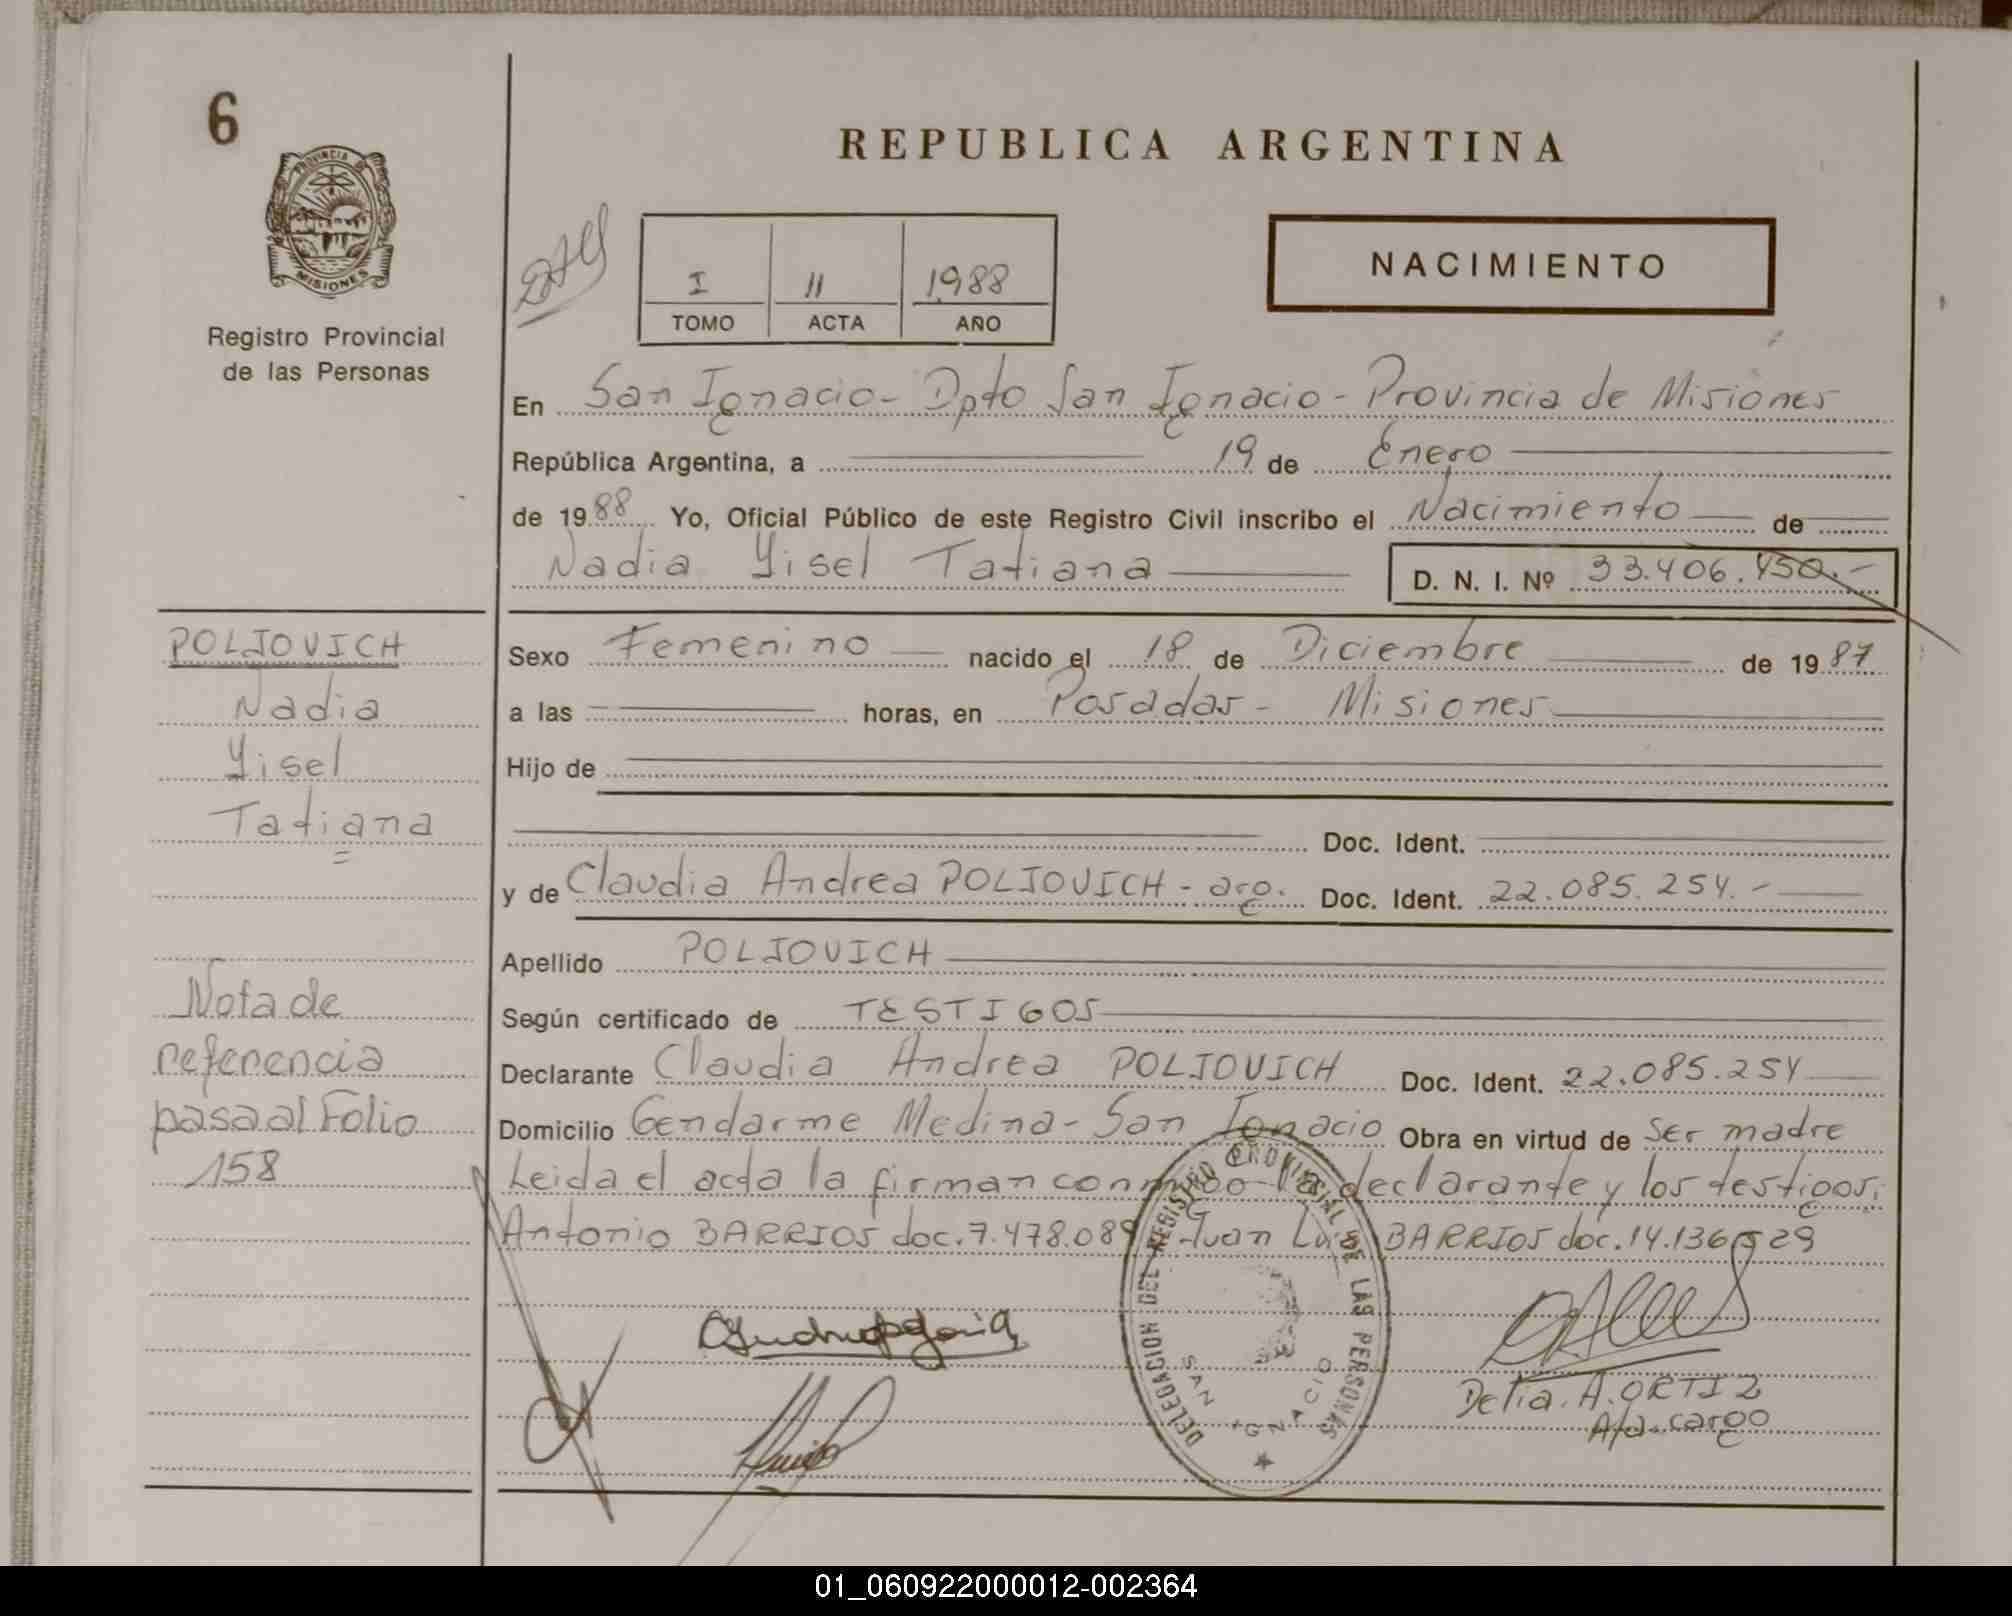 6
PROVINCIA DE
MISIONES
Registro Provincial
de las Personas
REPUBLICA ARGENTINA
I 11 1988
TOMO ACTA AÑO
NACIMIENTO
En San Ignacio - Dpto San Ignacio - Provincia de Misiones
República Argentina, a 19 de Enero
de 1988 Yo, Oficial Público de este Registro Civil inscribo el Nacimiento de
Nadia Yisel Tatiana D. N. I. Nº 33.406.450.-
POLJOVICH
Nadia
Yisel
Tatiana
Sexo Femenino nacido el 18 de Diciembre de 1987
a las horas, en Posadas - Misiones
Hijo de
Doc. Ident.
y de Claudia Andrea POLJOVICH - arg. Doc. Ident. 22.085.254.-
Apellido POLJOVICH
Según certificado de TESTIGOS
Declarante Claudia Andrea POLJOVICH Doc. Ident. 22.085.254
Domicilio Gendarme Medina - San Ignacio Obra en virtud de ser madre
Leida el acta la firman conmigo la declarante y los testigos:
Antonio BARRIOS doc. 7.478.089 Juan Luis BARRIOS doc. 14.136.529
Nota de
referencia
pasa al Folio
158
DELEGACION DEL REGISTRO PROVINCIAL DE LAS PERSONAS
SAN IGNACIO
Delia. A. ORTIZ
A/a-cargo
01_060922000012-002364